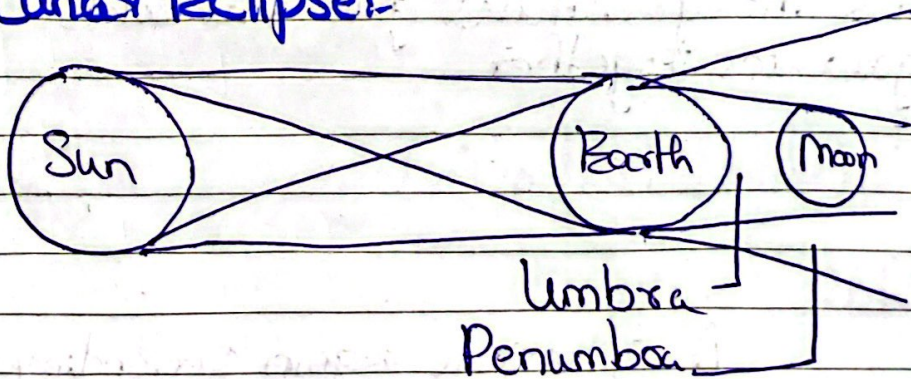 Lunar Eclipse:-
Sun
Earth
Moon
Umbra
Penumbra